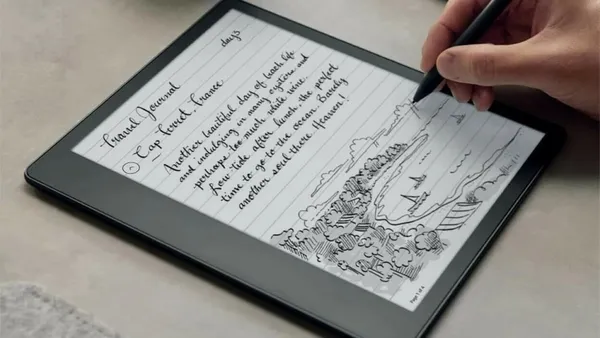 Travel Journal
day
Cap Ferret, France
Another beautiful day of beach life
and indulging in many oysters and
perhaps too much white wine.
Low tide after lunch, the perfect
time to go to the ocean. Barely
another soul there. Heaven!
Page 1 of 4